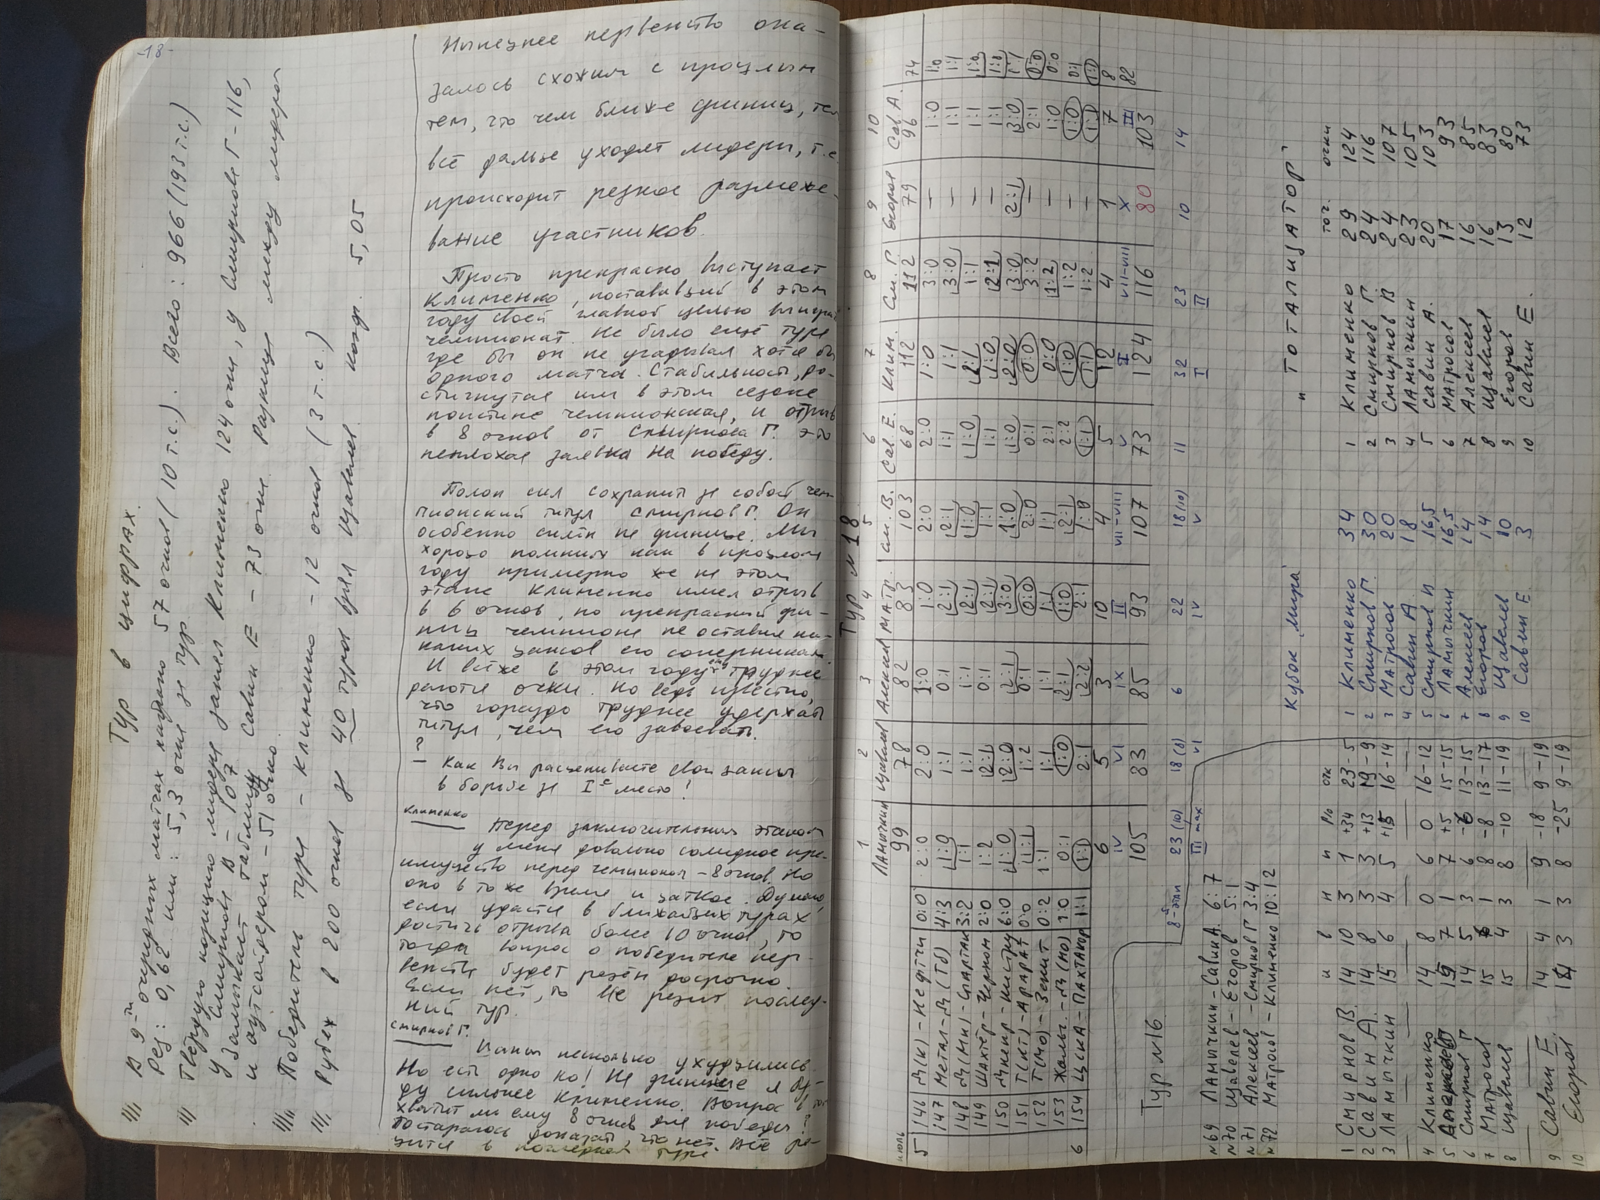 -18-
Тур в цифрах.
В 9-ти очередных матчах набрано 57 очков (10 т.с.). Всего: 966 (193 т.с.)
Рез: 0,62 или: 5,3 очка за тур
Твёрдую позицию лидера занял Клименко 124 очка, у Смирнова Г - 116,
у Смирнова В - 107
и аутсайдером - 51 очко.
Победитель тура - Клименко - 12 очков (3 т.с.)
Рубеж в 200 очков за 40 туров взял Щавелев коэф. 5,05
Нынешнее первенство ока-
залось схожим с прошлым
тем, что чем ближе финиш, тем
всё дальше уходят лидеры, т.е.
происходит резкое размеже-
вание участников.
Просто прекрасно выступает
Клименко, поставивший в этом
году своей главной целью выиграть
чемпионат. Не было ещё тура
где бы он не угадывал хотя бы
одного матча. Стабильность, до-
стигнутая им в этом сезоне
поистине чемпионская, и отрыв
в 8 очков от Смирнова Г. это
неплохая заявка на победу.
Полон сил сохранить за собой чем-
пионский титул Смирнов Г. Он
особенно силён на финише. Мы
хорошо помним как в прошлом
году примерно же на этом
этапе Клименко имел отрыв
в 6 очков, но прекрасный фи-
ниш чемпиона не оставил ни-
каких шансов его соперникам.
И всё же в этом году ему труднее
даются очки. Но ведь известно,
что гораздо труднее удержать
титул, чем его завоевать.
?
- Как Вы расцениваете свои шансы
в борьбе за I-е место!
Клименко
Перед заключительным этапом
у меня довольно солидное пре-
имущество перед чемпионом - 8 очков. Но
оно в то же время и шаткое. Думаю,
если удастся в ближайших турах
достичь отрыва более 10 очков, то
тогда вопрос о победителе пер-
венства будет решён досрочно.
Если нет, то всё решит послед-
ний тур.
Смирнов Г.
Шансы несколько ухудшились.
Но есть одно но! На финише я бу-
ду сильнее Клименко. Вопрос в том
хватит ли ему 8 очков для победы?
Постараюсь доказать, что нет. Всё ре-
шится в последнем туре.
Тур №18
1 2 3 4 5 6 7 8 9 10
Ламычкин Щавелев Алексеев Матр. См. В. Сав. Е. Клим. См. Г. Егоров Сав. А.
99 78 82 83 103 68 112 112 79 96 74
июль
5 146 Д(К) - Нефтчи 0:0 2:0 2:0 1:0 1:0 2:0 2:0 1:0 3:0 — 1:0 1:0
147 Метал - Д(Тб) 4:3 1:1 0:1 2:1 2:1 1:1 1:1 3:0 — 1:1 1:1
148 Д(Мн) - Спартак 3:2 1:1 1:1 1:1 2:1 1:0 1:0 2:1 1:1 — 1:1 1:0
149 Шахтёр - Черном 2:0 1:2 2:1 0:1 2:1 1:1 1:1 1:0 2:1 — 1:1 1:0
150 Днепр - Кистру 6:0 1:0 2:0 2:1 3:0 1:0 1:0 2:0 3:0 2:1 3:0 1:1
151 Т(КТ) - Арарат 0:0 1:1 1:2 0:1 0:0 2:0 0:1 0:0 3:2 — 2:1 0:0
152 Т(МО) - Зенит 0:2 1:1 1:1 1:1 1:1 2:1 0:0 1:2 — 1:0 0:0
153 Жальг. - Д(МО) 1:0 0:1 1:0 2:1 1:0 2:1 2:2 1:0 1:2 — 1:0 0:1
6 154 ЦСКА - Пахтакор 1:1 1:1 2:1 2:2 2:1 1:0 1:1 1:1 1:2 — 1:1 1:1
6 5 3 10 4 5 12 4 1 7 8
IV VI IX II VII-VIII V I VII-VIII X III
105 83 85 93 107 73 124 116 80 103 82
8-5 этап 23(10) 18(8) 6 22 18(10) 11 32 23 10 14
III max VI IV V I II
Тур №16
№69 Ламычкин - Савин А. 6:7
№70 Щавелев - Егоров 5:1
№71 Алексеев - Смирнов Г 3:4
№72 Матросов - Клименко 10:12
и в н п Ро очк
1 Смирнов В. 14 10 3 1 +34 23-5
2 Савин А. 14 8 3 3 +13 19-9
3 Ламычкин 15 6 4 5 +15 16-14
4 Клименко 14 8 0 6 0 16-12
5 Алексеев 15 7 1 7 +5 15-15
6 Смирнов Г 14 5 3 6 13-15
7 Матросов 15 1 8 -8 13-17
8 Щавелев 15 4 3 8 -10 11-19
9 Савин Е. 14 4 1 9 -18 9-19
10 Егоров 14 3 3 8 -25 9-19
Кубок "Мира"
1 Клименко 34
2 Смирнов Г. 30
3 Матросов 20
4 Савин А 18
5 Смирнов В 16,5
6 Ламычкин 16,5
7 Алексеев 14
8 Егоров 14
9 Щавелев 10
10 Савин Е 3
"Тотализатор"
точ. очки
1 Клименко 29 124
2 Смирнов Г. 24 116
3 Смирнов В 24 107
4 Ламычкин 23 105
5 Савин А. 20 103
6 Матросов 17 93
7 Алексеев 16 85
8 Щавелев 16 83
9 Егоров 13 80
10 Савин Е. 12 73